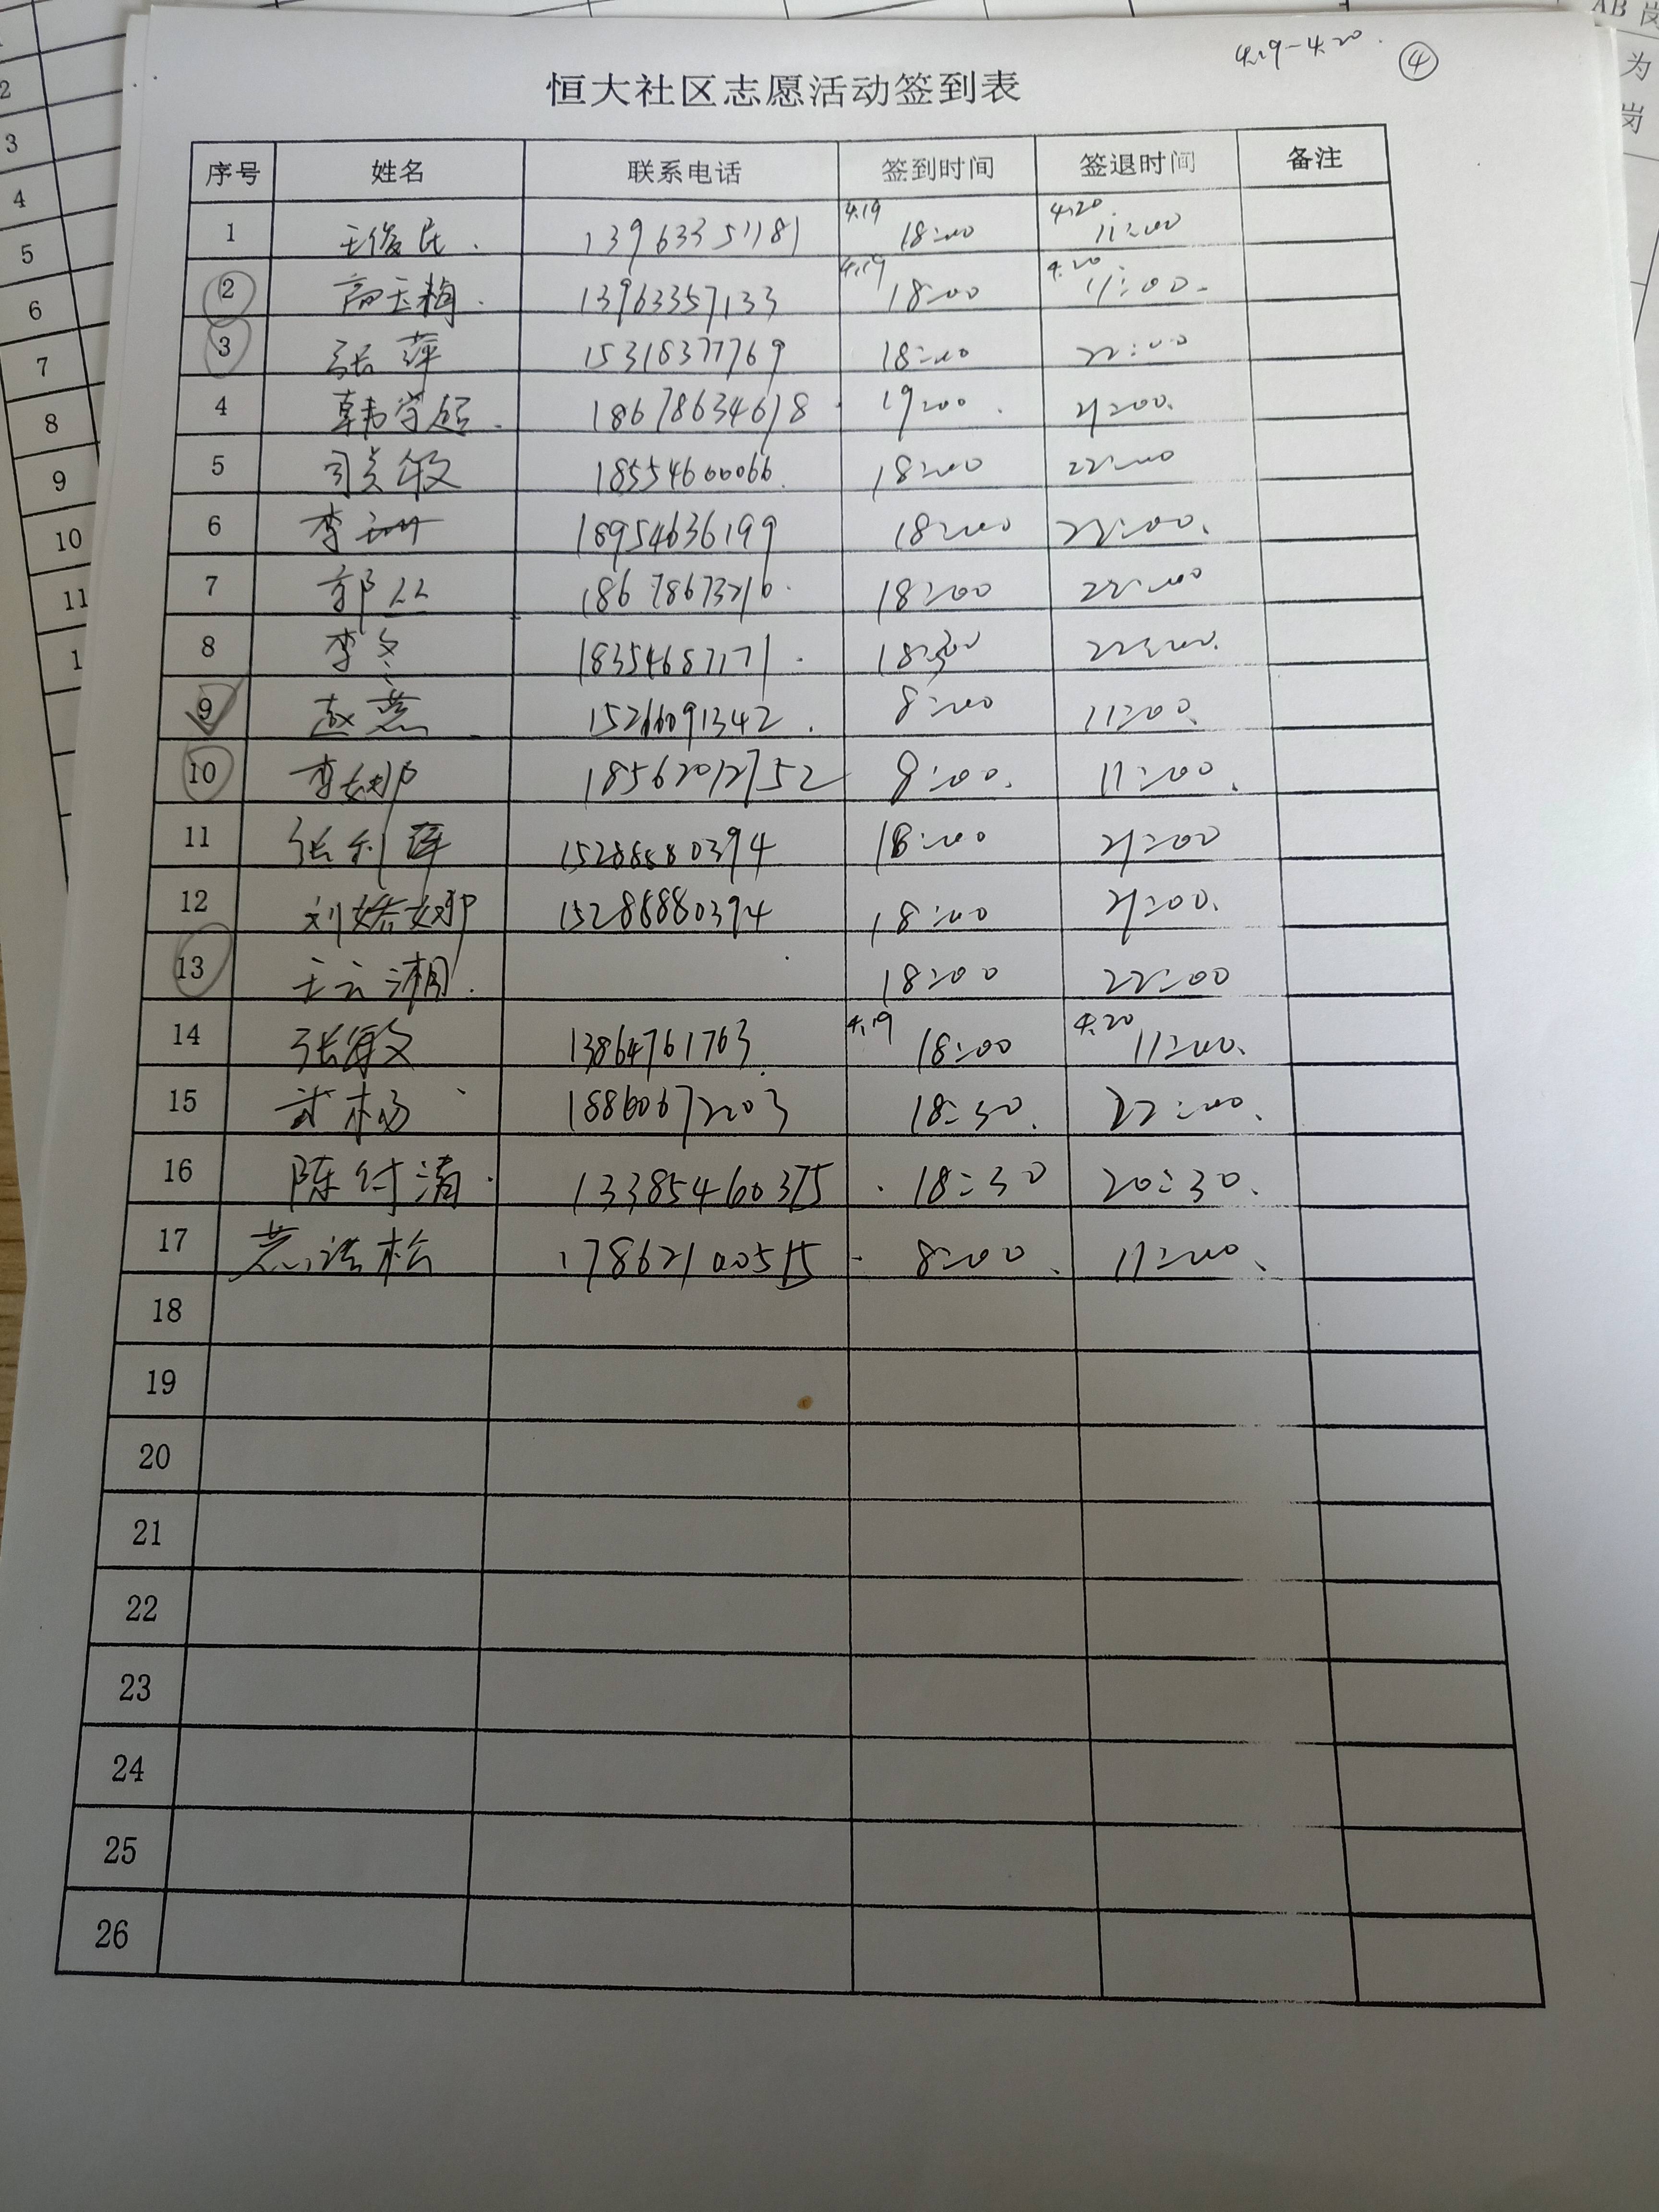 AB 岗
为
岗
2
3
4
5
6
7
8
9
10
11
1
4.19-4.20. ④
恒大社区志愿活动签到表
序号 姓名 联系电话 签到时间 签退时间 备注
1 王俊民. 13963351181 4.19 18:00 4.20 11:00
2 高玉梅. 13963357133 4.19 18:00 4.20 11:00.
3 张萍 15318377769 18:00 22:00
4 韩学超. 18678634618 19:00. 21:00.
5 司炎敏 18554600066. 18:00 22:00
6 李珊 18954636199 18:00 22:00.
7 郭丛 18678673216. 18:00 22:00
8 李冬 18354687171. 18:30 22:00.
9 赵燕 15266091342. 8:00 11:00.
10 李娜 18562012752 8:00. 11:00.
11 张利萍 15288880394 18:00 21:00
12 刘娇娜 15288880394 18:00 21:00.
13 王云湘. 18:00 22:00
14 张敏 13864761763. 4.19 18:00 4.20 11:00.
15 武杨 18860672203 18:30. 22:00.
16 陈付清. 13385460375. 18:30 20:30.
17 松 17862100515. 8:00. 11:00.
18
19
20
21
22
23
24
25
26